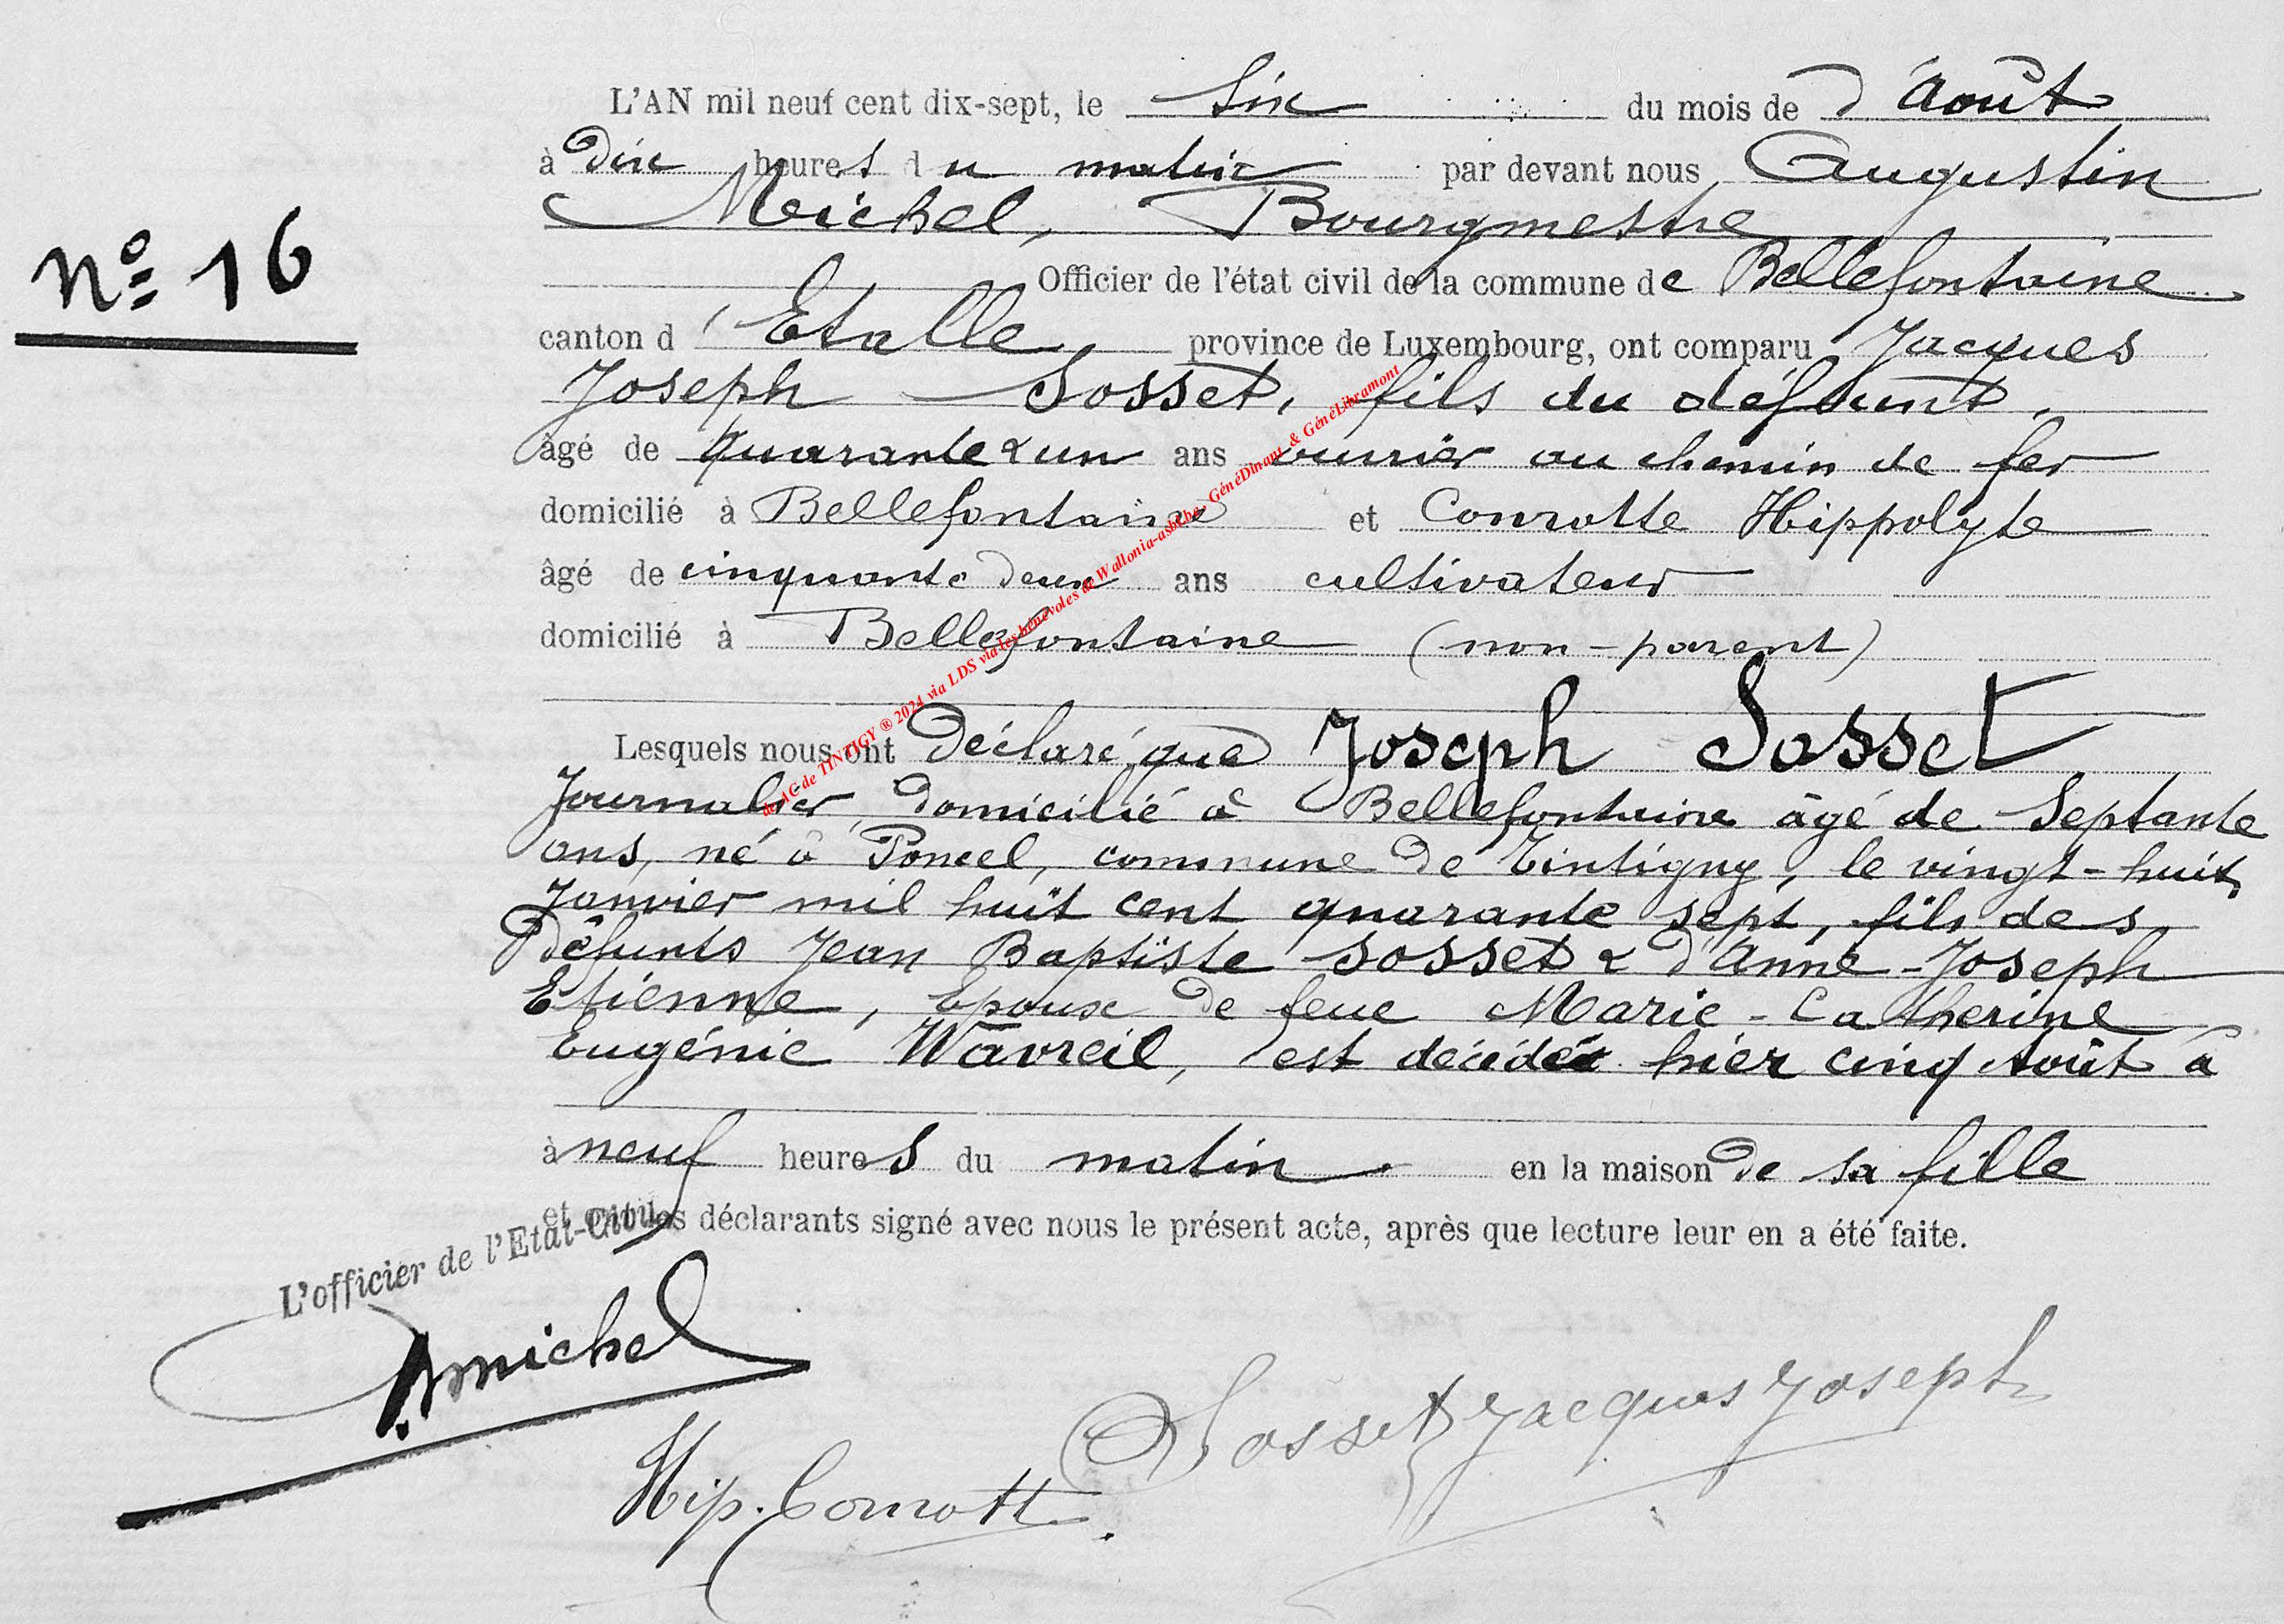 L'AN mil neuf cent dix-sept, le Six du mois de d'Août
à Dix heures du matin par devant nous Augustin
Michel, Bourgmestre
N° 16
Officier de l'état civil de la commune de Bellefontaine
canton d'Etalle province de Luxembourg, ont comparu Jacques
Joseph Sosset, fils du défunt,
âgé de quarante & un ans ouvrier au chemin de fer
domicilié à Bellefontaine et Conrotte Hippolyte
âgé de cinquante deux ans cultivateur
domicilié à Bellefontaine (non-parent)
Lesquels nous ont Déclaré que Joseph Sosset
Journalier, domicilié à Bellefontaine âgé de Septante
ans, né à Poncel, commune de Tintigny, le vingt-huit
Janvier mil huit cent quarante sept, fils des
Défunts Jean Baptiste Sosset & d'Anne-Joseph
Etienne, Epoux de feue Marie-Catherine
Eugénie Wavreil, est décédé hier cinq Août à
à neuf heures du matin en la maison de sa fille
et ont les déclarants signé avec nous le présent acte, après que lecture leur en a été faite.
L'officier de l'Etat-Civil,
AMichel
Sosset Jacques Joseph
Hip. Conrotte
de AG de TINTIGY ® 2024 via LDS via les bénévoles de Wallonia-asbl.be, GénéDinant & GénéLibramont